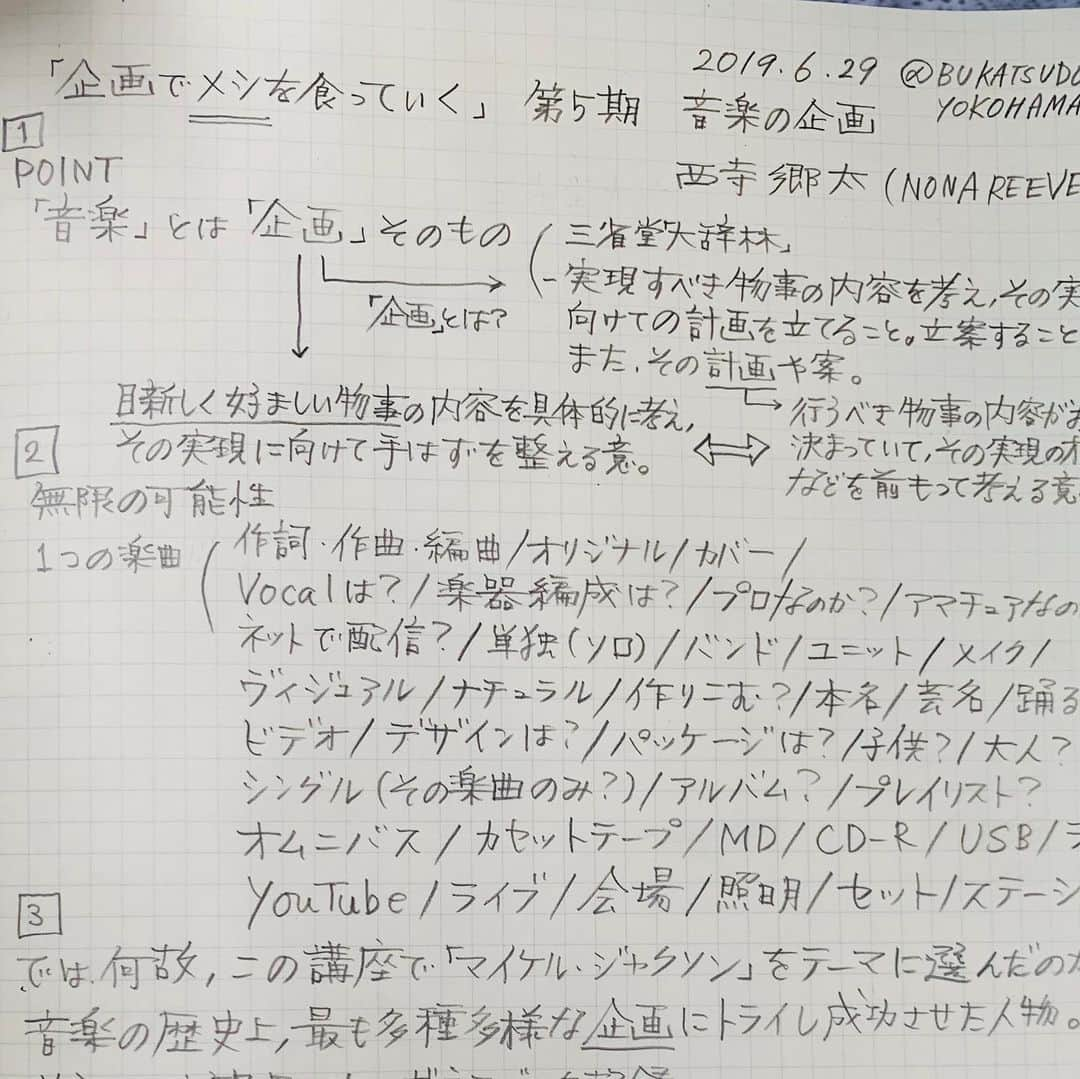 2019.6.29 @BUKATSUDO
「企画でメシを食っていく」 第5期 音楽の企画 YOKOHAMA
1
POINT
西寺郷太 (NONA REEVE
「音楽」とは「企画」そのもの
三省堂「大辞林」
- 実現すべき物事の内容を考え、その実
「企画」とは?
向けての計画を立てること。立案すること
また、その計画や案。
目新しく好ましい物事の内容を具体的に考え、
その実現に向けて手はずを整える意。
行うべき物事の内容がお
決まっていて、その実現の
などを前もって考える意
2
無限の可能性
1つの楽曲
作詞・作曲・編曲/オリジナル/カバー/
Vocalは?/楽器編成は?/プロなのか?/アマチュアなの
ネットで配信?/単独(ソロ)/バンド/ユニット/メイク/
ヴィジュアル/ナチュラル/作りこむ?/本名/芸名/踊る
ビデオ/デザインは?/パッケージは?/子供?/大人?
シングル(その楽曲のみ?)/アルバム?/プレイリスト?
オムニバス/カセットテープ/MD/CD-R/USB/
YouTube/ライブ/会場/照明/セット/ステージ
3
では、何故、この講座で「マイケル・ジャクソン」をテーマに選んだのか
音楽の歴史上、最も多種多様な企画にトライし成功させた人物。